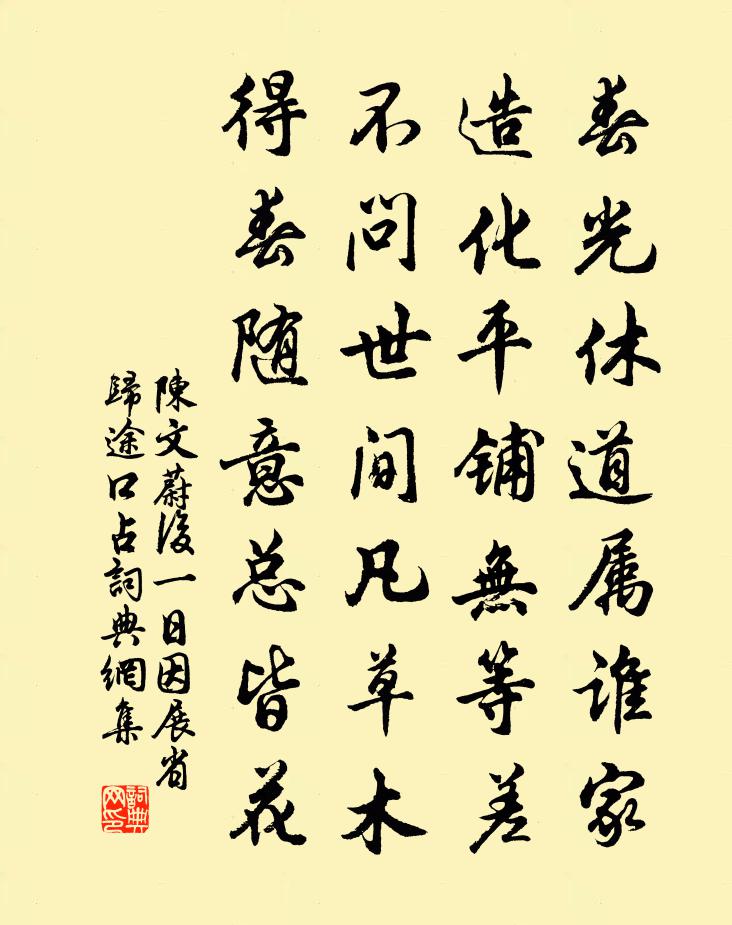 春光休道属谁家
造化平铺無等差
不问世间凡草木
得春随意总皆花
陳文蔚後一日因展省
歸途口占詞典網集
詞典
网印